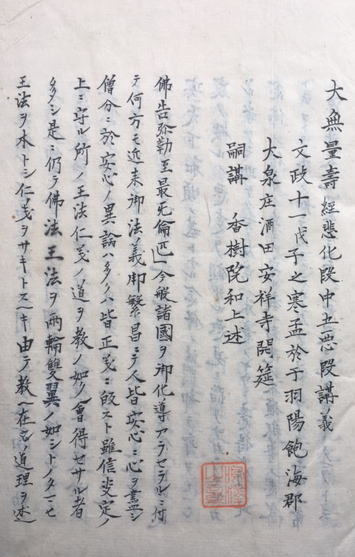 大無量壽經悲化段中五悪段講義
文政十一戊子之寒孟於于羽陽飽海郡
大泉庄酒田安祥寺開筵
嗣講 香樹院和上述
佛告弥勒至最无倫匹 今般諸國ヲ御化導アラセラルヽニ付
テ何方モ近来御法義御繁昌ニテ人皆安心ニ心ヲ盡シ
僧分ニ於安心ノ異論ハ多ケレ𪜈皆正義ニ皈スト雖信決定ノ
上ニ守ル所ノ王法仁義ノ道ヲ教ノ如ク會得セサル者
多シ是ニ仍テ佛法王法ヲ両輪雙翼ノ如シトノタマヒ
王法ヲ本トシ仁義ヲサキトスヘキ由ヲ教ヘ在ス道理ヲ述